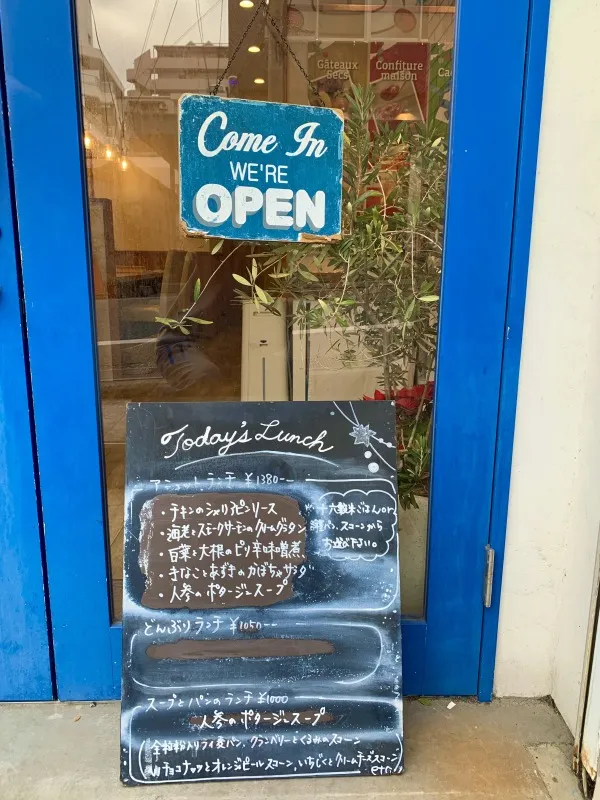 Gâteaux
Secs
Confiture
maison
Ca
Come In
WE'RE
OPEN
Today's Lunch
アシェットランチ ¥1380--
・チキンのシャリアピンソース
・海老とスモークサーモンのクリームグラタン
・白菜と大根のピリ辛味噌煮
・きなことあずきのかぼちゃサラダ
・人参のポタージュスープ
十六穀米ごはんor
パン、スコーンから
お選び下さい。
どんぶりランチ ¥1050--
スープとパンのランチ ¥1000
人参のポタージュスープ
全粒粉入りライ麦パン、クランベリーとくるみのスコーン
チョコナッツとオレンジピールスコーン、いちじくとクリームチーズスコーン
etc..